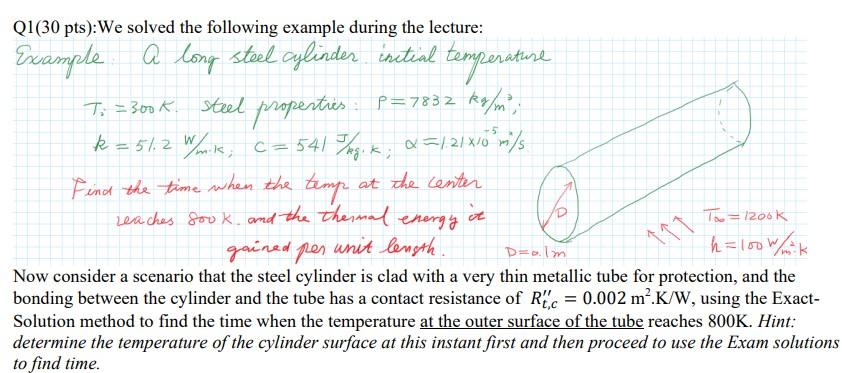 Q1(30 pts):We solved the following example during the lecture:
Example: A long steel cylinder initial temperature
Ti = 300K. Steel properties: ρ=7832 kg/m³;
k = 51.2 W/m·K; C = 541 J/kg·K; α=1.21×10⁻⁵ m²/s
Find the time when the temp at the center
reaches 800K. and the thermal energy it
gained per unit length.
D
D=0.1m
T∞=1200K
h=100 W/m²·K
Now consider a scenario that the steel cylinder is clad with a very thin metallic tube for protection, and the
bonding between the cylinder and the tube has a contact resistance of R″t,c = 0.002 m².K/W, using the Exact-
Solution method to find the time when the temperature at the outer surface of the tube reaches 800K. Hint:
determine the temperature of the cylinder surface at this instant first and then proceed to use the Exam solutions
to find time.